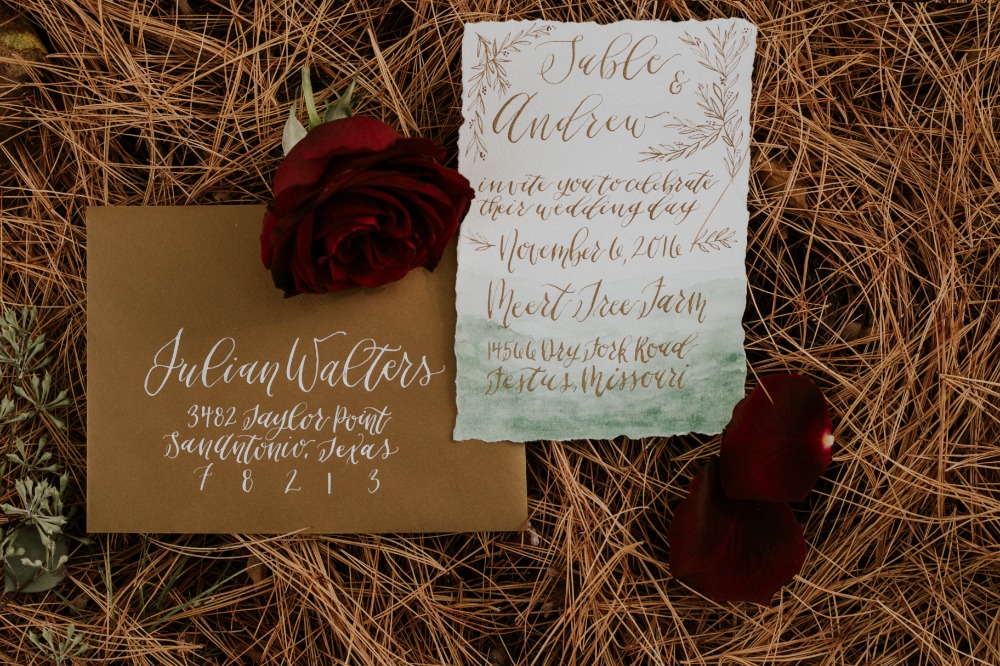 Julian Walters
3482 Taylor Point
San Antonio, Texas
7 8 2 1 3
Sable
&
Andrew
invite you to celebrate
their wedding day
November 6, 2016
Meert Tree Farm
14566 Dry Fork Road
Festus, Missouri